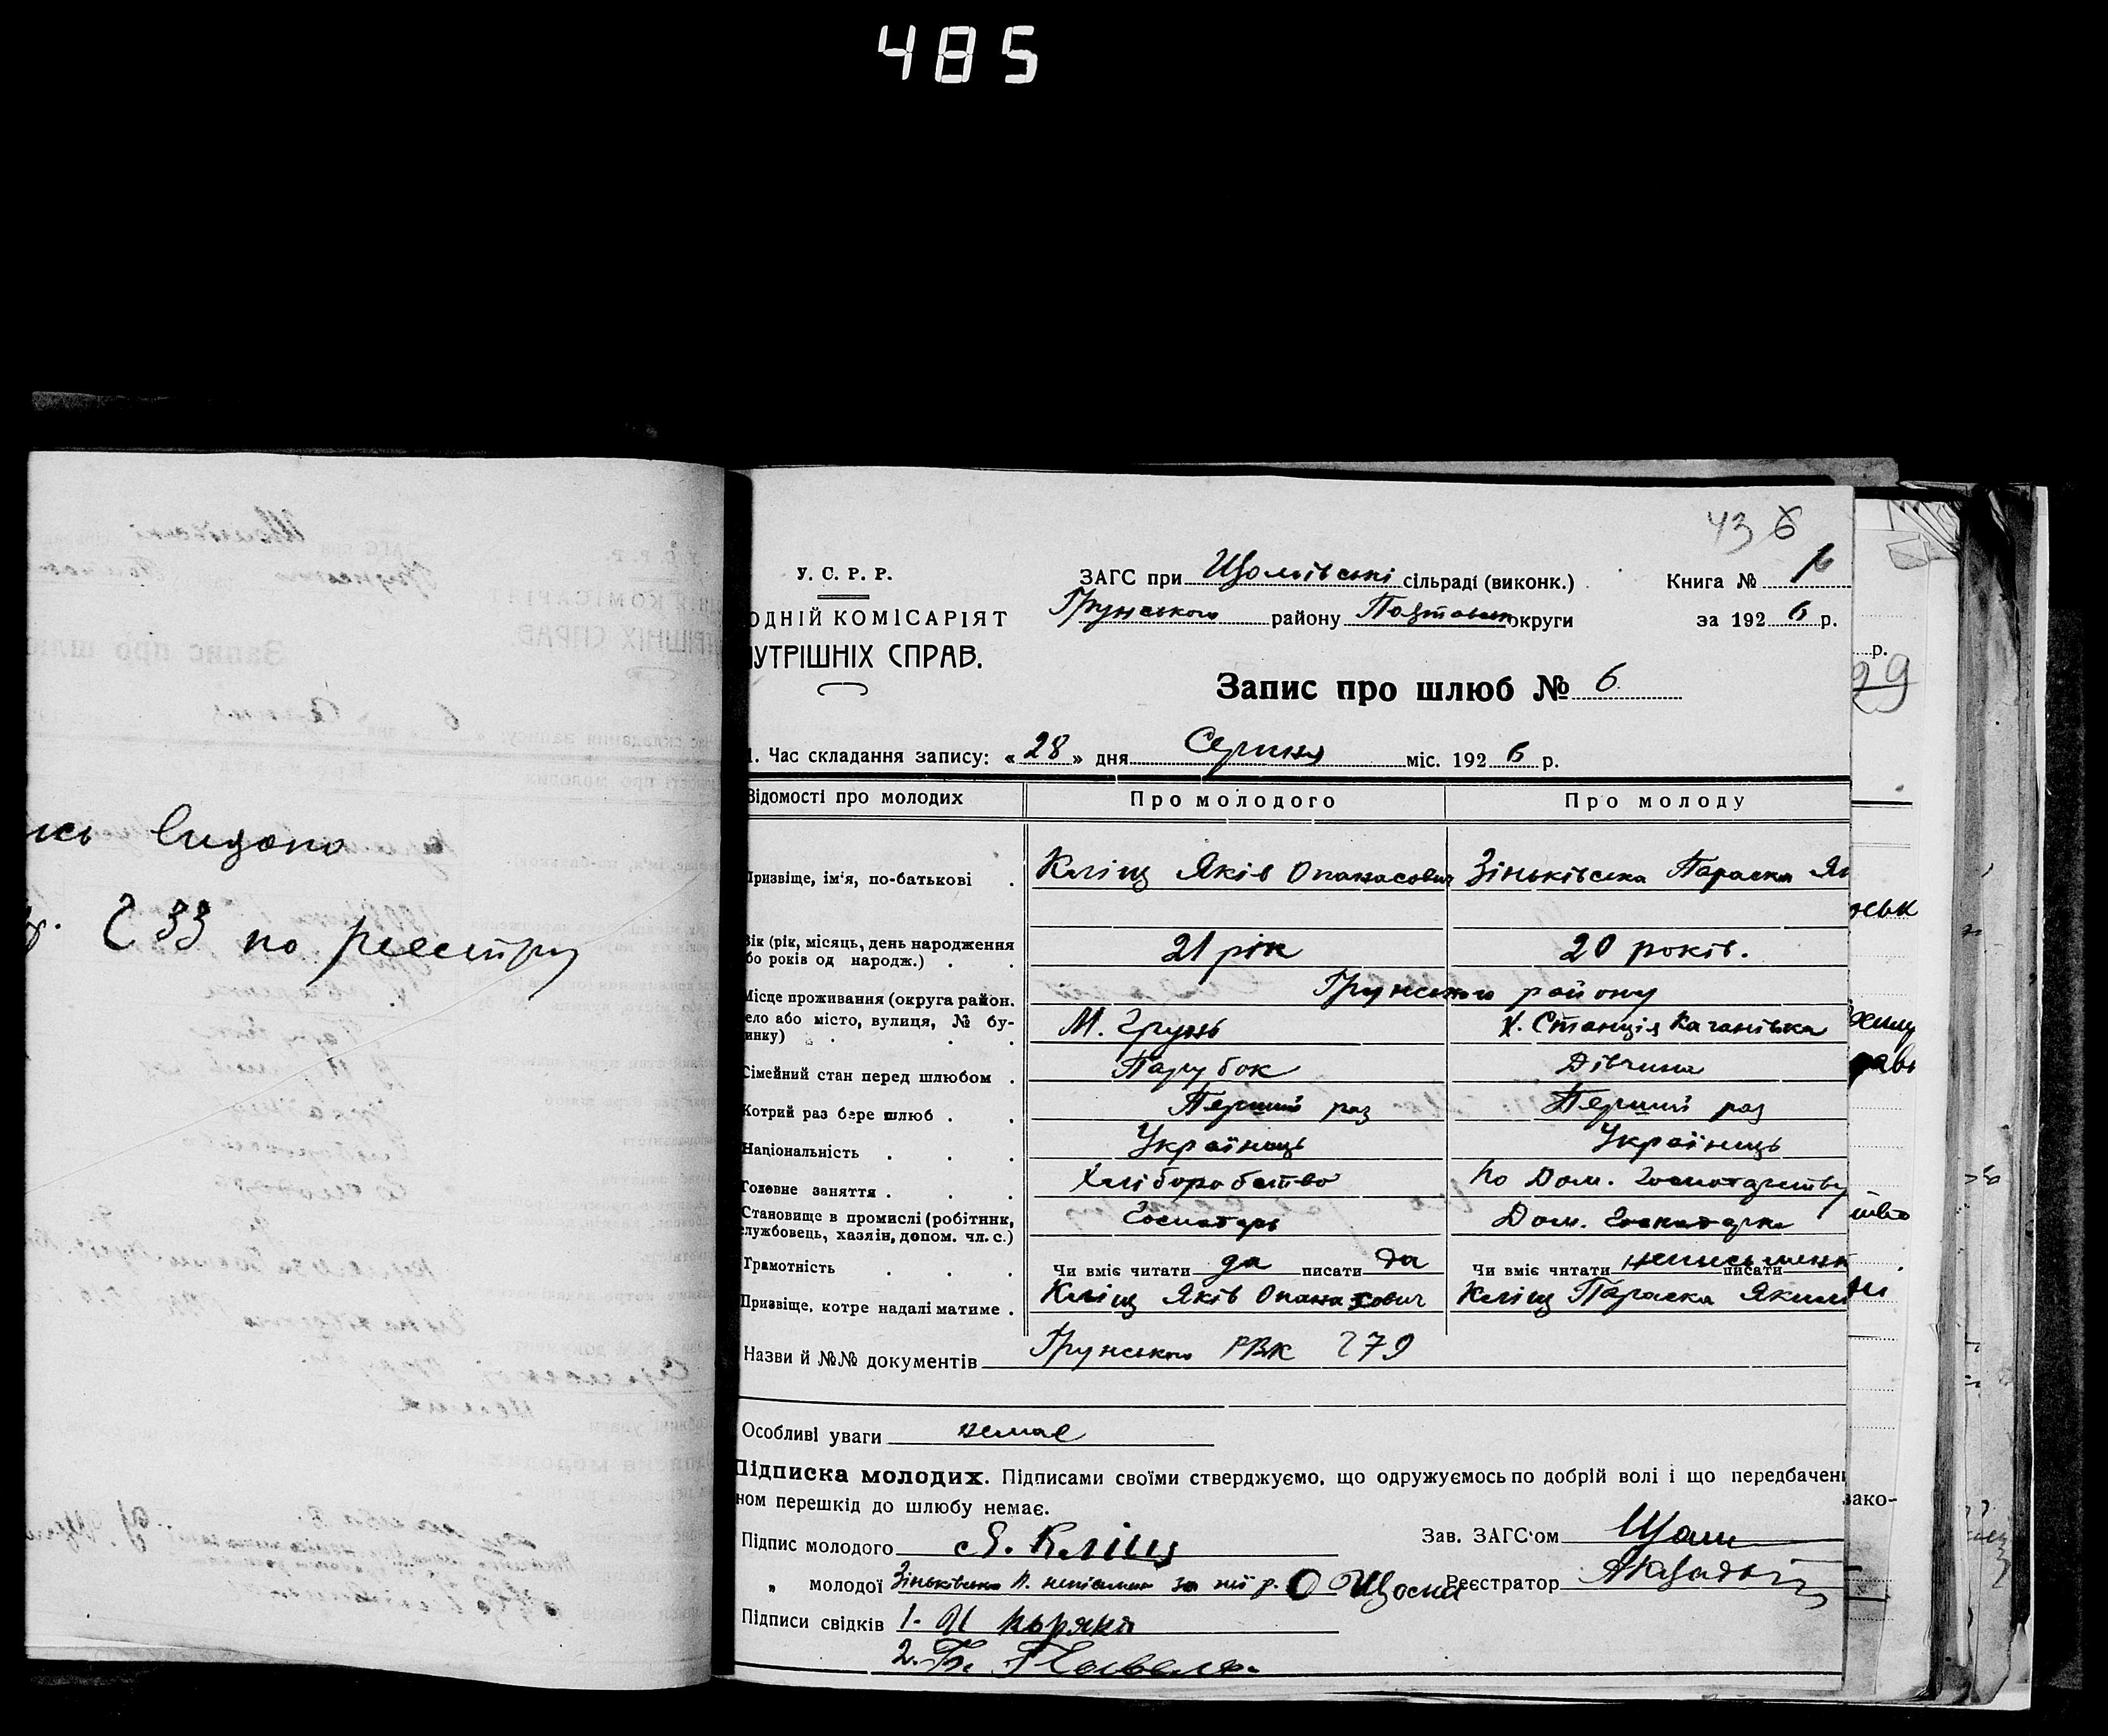 485
лись видано
233 по реестру
43 6
У. С. Р. Р.
ОДНІЙ КОМІСАРІЯТ
УТРІШНІХ СПРАВ.
ЗАГС при сільраді (виконк.)
Грунського району округи
Книга №
за 1926 р.
р.
99
Запис про шлюб № 6
1. Час складання запису: «28» дня Серпня міс. 1926 р.
Відомості про молодих
Про молодого
Про молоду
Призвіще, ім'я, по-батькові .
Кліщ Яків Опанасович
Зіньківська Параска Як
Вік (рік, місяць, день народження
бо років од народж.) . .
21 рік
20 років.
Місце проживання (округа район.
ело або місто, вулиця, № бу-
инку) . . .
Грунського району
М. Грунь
х. Станція Качанівка
Сімейний стан перед шлюбом .
Парубок
Дівчина
Котрий раз бере шлюб . .
Перший раз
Перший раз
Національність . . .
Українець
Українець
Головне заняття . . .
Хліборобство
по Дом. Госпотарству
Становище в промислі (робітник,
службовець, хазяін, допом. чл. с.)
Госпотарь
Дом. Госпотарка
Грамотність . . .
Чи вміє читати да писати да
Чи вміє читати неписьменн писати
Призвіще, котре надалі матиме .
Кліщ Яків Опанасович
Кліщ Параска Якимі
Назви й №№ документів Грунського РВК 279
Особливі уваги немає
Підписка молодих. Підписами своїми стверджуємо, що одружуємось по добрій волі і що передбачені
зако-
ном перешкід до шлюбу немає.
Підпис молодого Я. Кліщ
Зав. ЗАГС'ом
„ молодої Зіньківська П. за неї р. О
Реєстратор
Підписи свідків 1.
2.